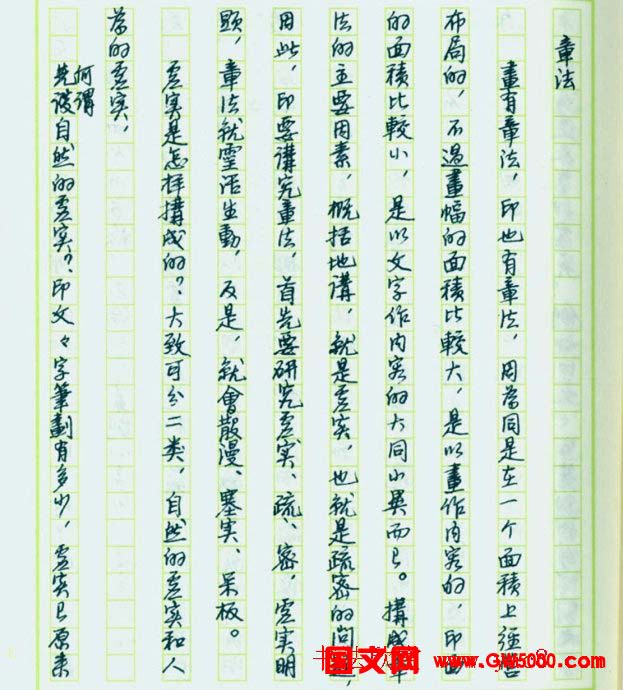 章法
畫有章法，印也有章法，因爲同是在一个面積上經营
布局的，不過畫幅的面積比較大，是以畫作内容的，印面
的面積比較小，是以文字作内容的大同小異而已。構成章
法的主要因素，概括地講，就是虛实，也就是疏密的问題，
因此，印要講究章法，首先要研究虛实、疏、密，虛实明
顯，章法就靈活生動，反是，就會散漫、塞实、呆板。
虛实是怎样搆成的？大致可分二类，自然的虛实和人
爲的虛实，
何謂
先談自然的虛实？印文々字筆劃有多少，虛实已原来
国文网
www.GW5000.com